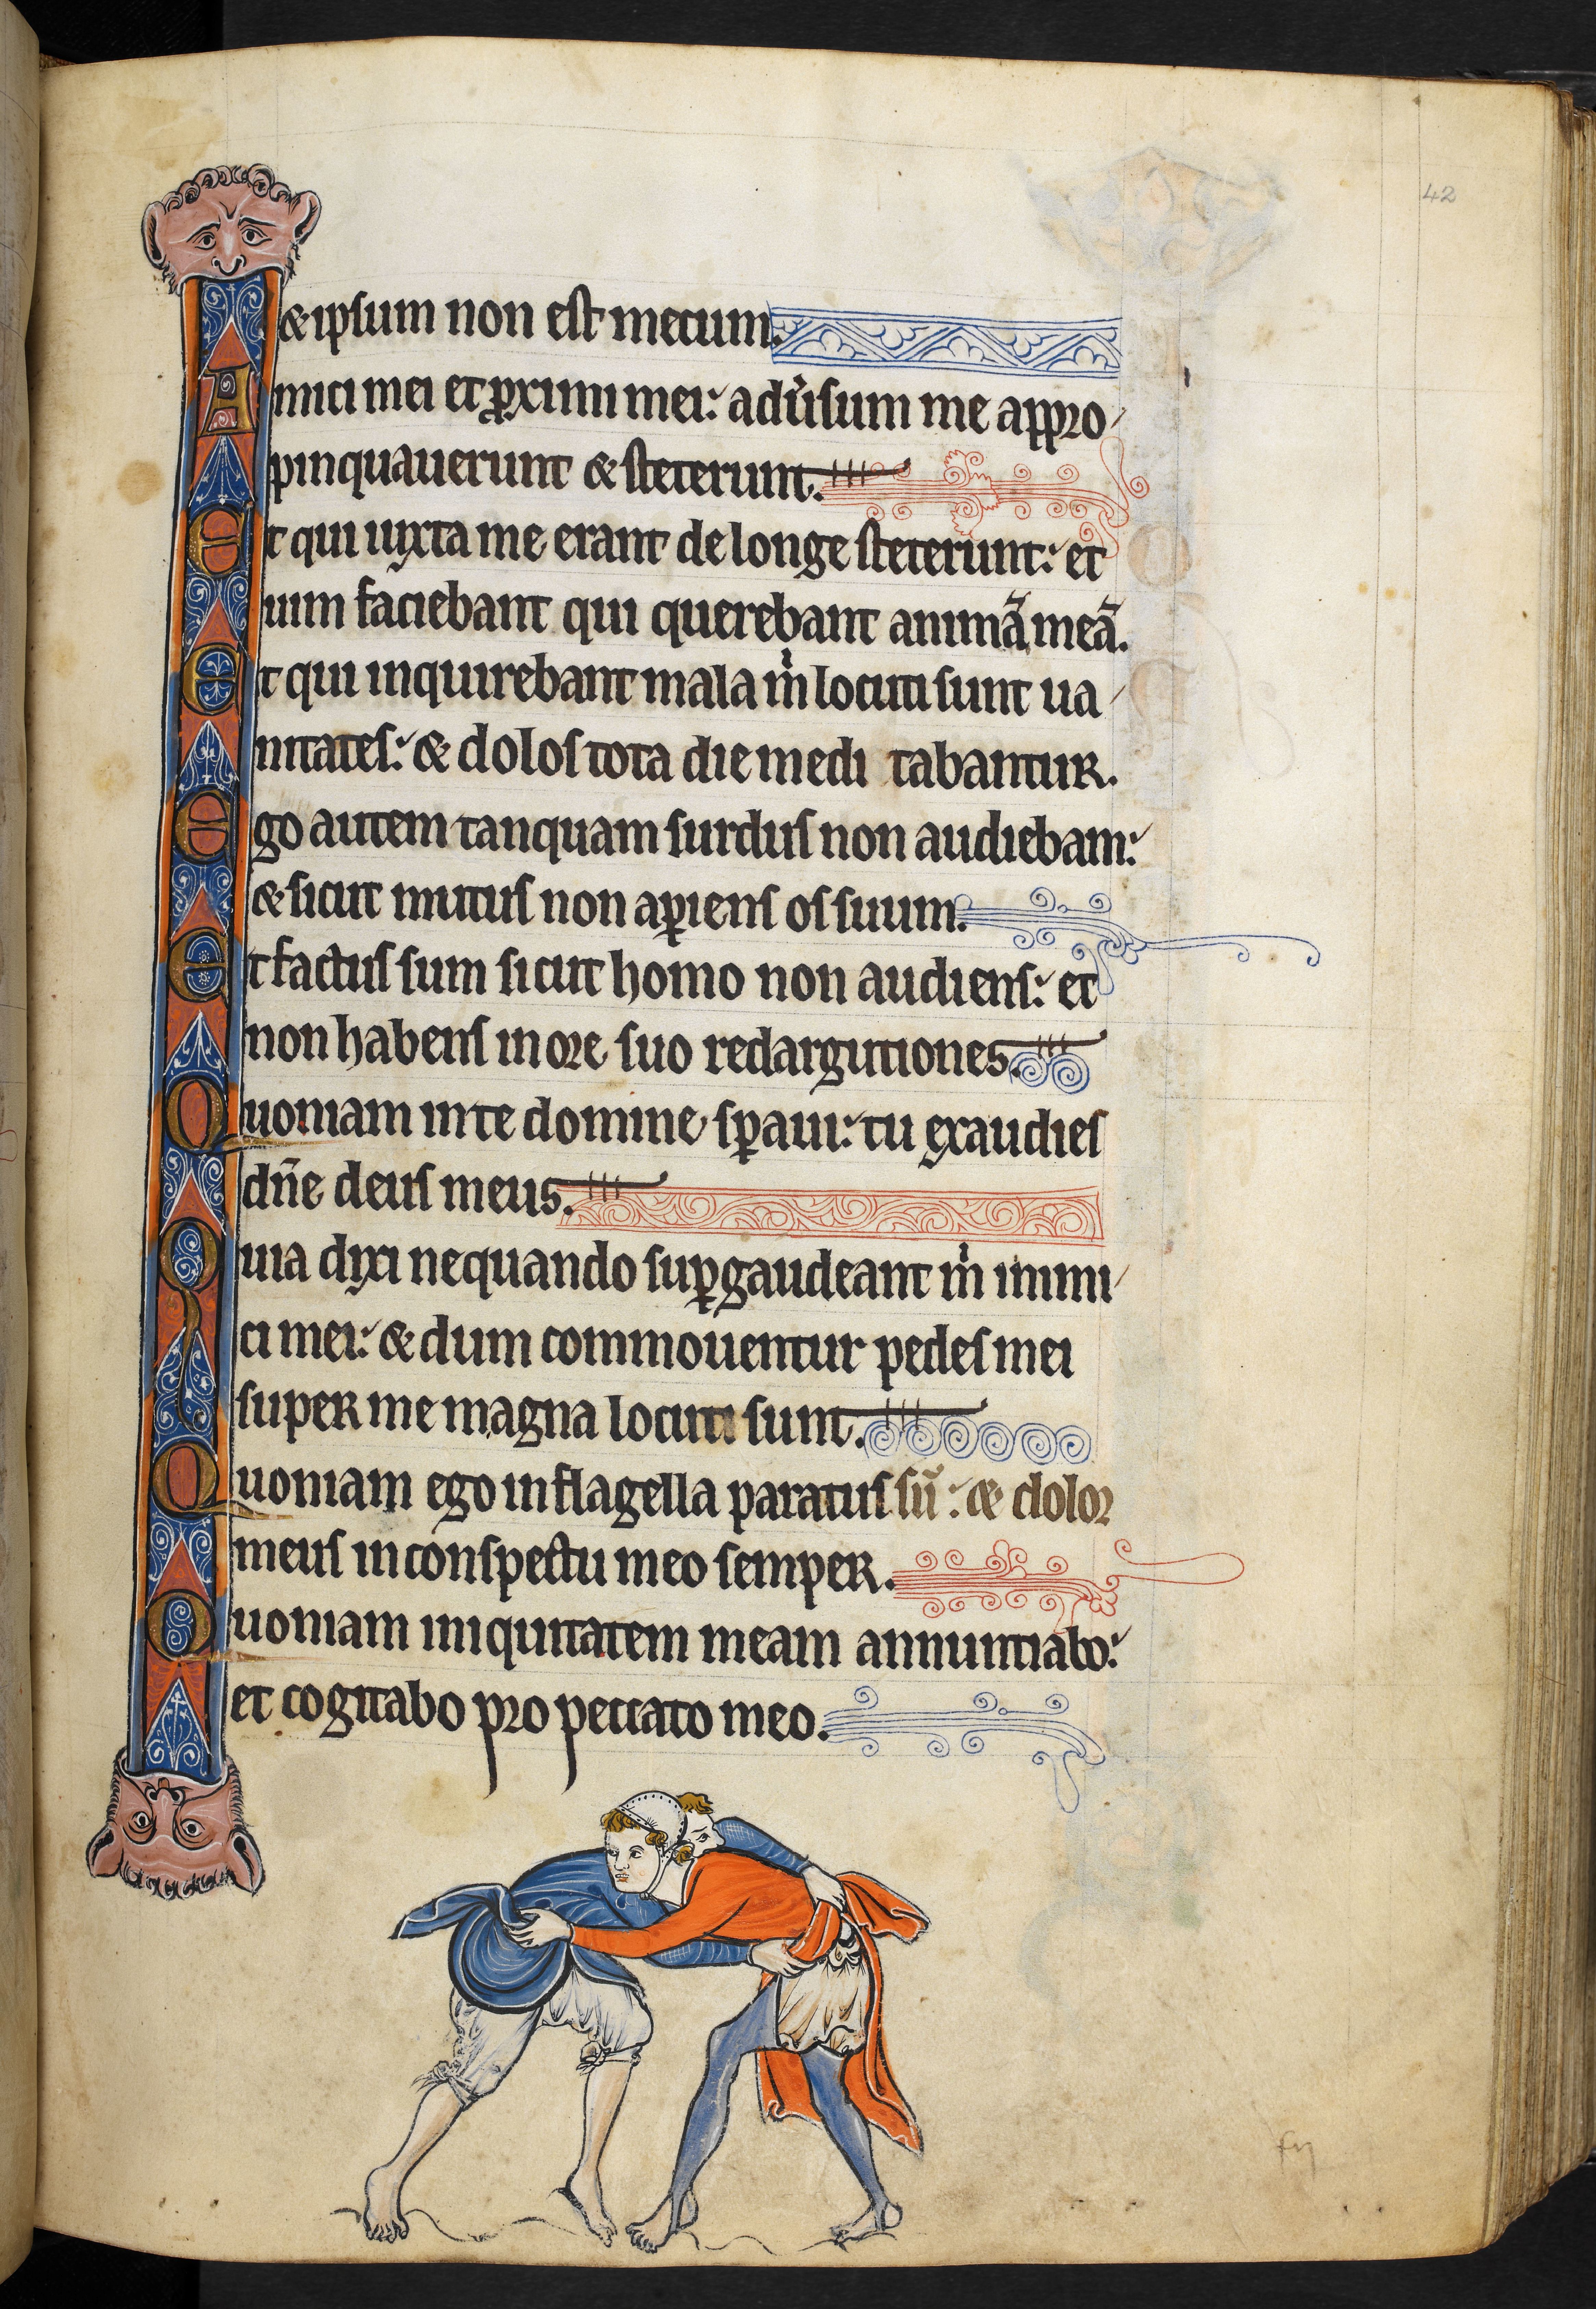 42
& ipsum non est mecum.
Amici mei et ꝓximi mei: aduͥsum me appro
pinquauerunt & steterunt.
Et qui iuxta me erant de longe steterunt: et
uim faciebant qui querebant animā meā.
Et qui inquirebant mala m̍ locuti sunt ua
nitates: & dolos tota die medi tabantur.
Ego autem tanquam surdus non audiebam:
& sicut mutus non aꝑiens os suum.
Et factus sum sicut homo non audiens: et
non habens in ore suo redargutiones.
Quoniam in te domine sꝑaui: tu exaudies
dn̄e deus meus.
Quia dixi nequando suꝑgaudeant m̍ inimi
ci mei: & dum commouentur pedes mei
super me magna locuti sunt.
Quoniam ego in flagella paratus sū: & dolor
meus in conspectu meo semper.
Quoniam iniquitatem meam annuntiabo:
et cogitabo pro peccato meo.